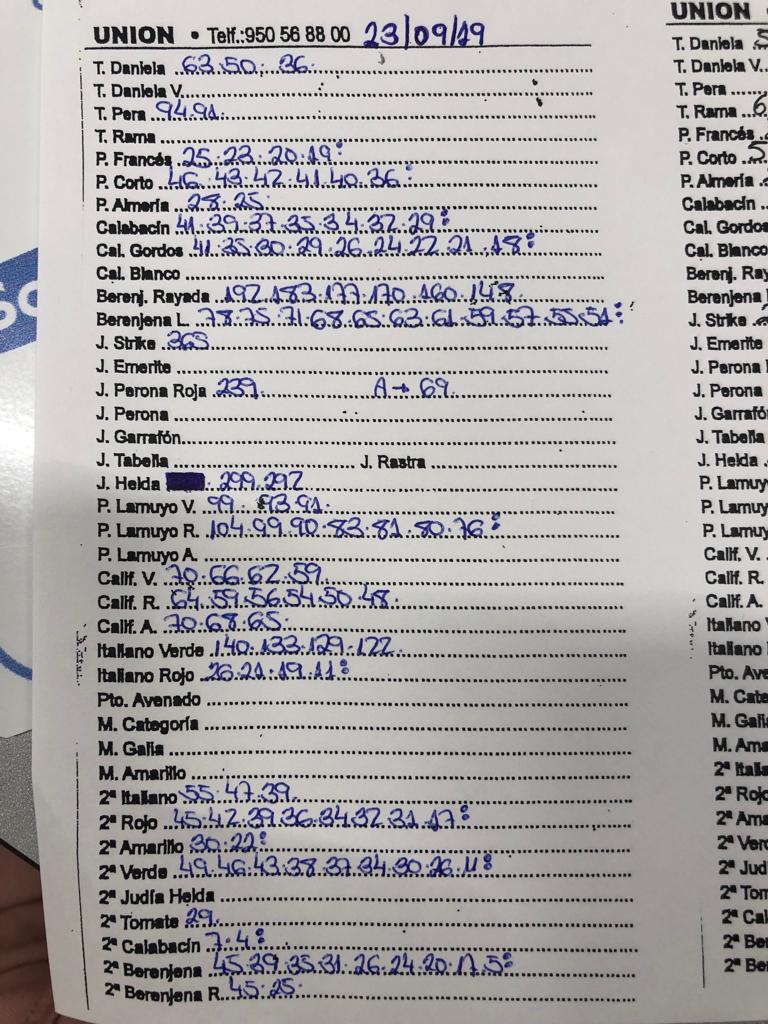 UNION • Telf.:950 56 88 00 23/09/19
T. Daniela 63.50. 36.
T. Daniela V.
T. Pera 94.91.
T. Rama
P. Francés 25.23.20.19:
P. Corto 46.43.42.41.40.36:
P. Almería 28.25.
Calabacín 41.39.37.35.34.32.29:
Cal. Gordos 41.35.30.29.26.24.22.21.18:
Cal. Blanco
Berenj. Rayada 192.183.177.170.160.148.
Berenjena L. 78.75.71.68.65.63.61.59.57.55.51:
J. Strike 365
J. Emerite
J. Perona Roja 239. A→69.
J. Perona
J. Garrafón
J. Tabella J. Rastra
J. Helda 299.297
P. Lamuyo V. 99. 93.91.
P. Lamuyo R. 104.99.90.83.81.80.76:
P. Lamuyo A.
Calif. V. 70.66.62.59.
Calif. R. 64.59.56.54.50.48.
Calif. A. 70.68.65.
Italiano Verde 140.133.129.122
Italiano Rojo 26.21.19.11:
Pto. Avenado
M. Categoría
M. Galia
M. Amarillo
2ª Italiano 55.47.39.
2ª Rojo 45.42.39.36.34.32.31.17:
2ª Amarillo 30.22:
2ª Verde 49.46.43.38.37.34.30.26.11:
2ª Judía Helda
2ª Tomate 29.
2ª Calabacín 7.4:
2ª Berenjena 45.39.35.31.26.24.20.17.5:
2ª Berenjena R. 45.25.
UNION
T. Daniela
T. Daniela V.
T. Pera
T. Rama
P. Francés
P. Corto
P. Almería
Calabacín
Cal. Gordos
Cal. Blanco
Berenj.
Berenjena
J. Strike
J. Emerite
J. Perona
J. Perona
J. Garrafón
J. Tabella
J. Helda
P. Lamuyo
P. Lamuyo
P. Lamuyo
Calif. V.
Calif. R.
Calif. A.
Italiano
Italiano
Pto.
M.
M.
M.
2ª
2ª
2ª
2ª
2ª
2ª
2ª
2ª
2ª